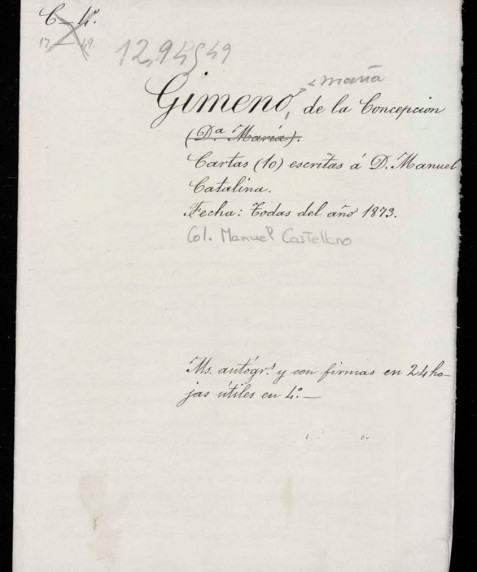 C-4ª.
17 - 49.
12,945 49
Gimeno, de la Concepcion
, María
(Dª María).
Cartas (10) escritas á D. Manuel
Catalina.
Fecha: Todas del año 1873.
Col. Manuel Castellano
Ms. autógrº y con firmas en 24 ho-
jas útiles en 4º.—